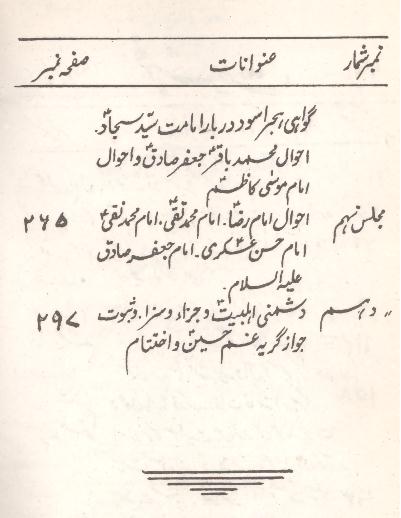 نمبر شمار عنوانات صفحہ نمبر
گواہی ہجر اسود در بار امامت سیّد سجادؑ۔
احوال محمد باقرؑ جعفر صادقؑ و احوال
امام موسٰی کاظمؑ
مجلس نہم احوال امام رضاؑ۔ امام محمد تقیؑ۔ امام محمد نقیؑ ۲۶۵
امام حسن عسکریؑ۔ امام جعفر صادق
علیہ السلام۔
〃 دہسم دشمنی اہلبیتؑ و جزاء و سزا۔ و ثبوت ۲۹۷
جواز گریہ غسم حسینؑ و اختتام